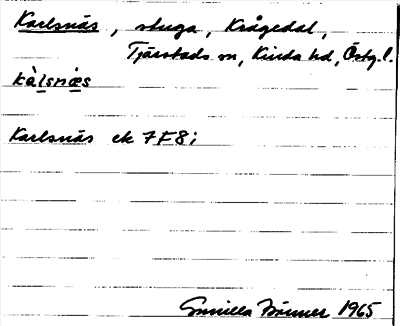 Karlsnäs, stuga, Krågedal,
Tjärstads sn, Kinda hd, Östg.l.
kàlsnæs
Karlsnäs ek 7F8i
Gunilla 1965